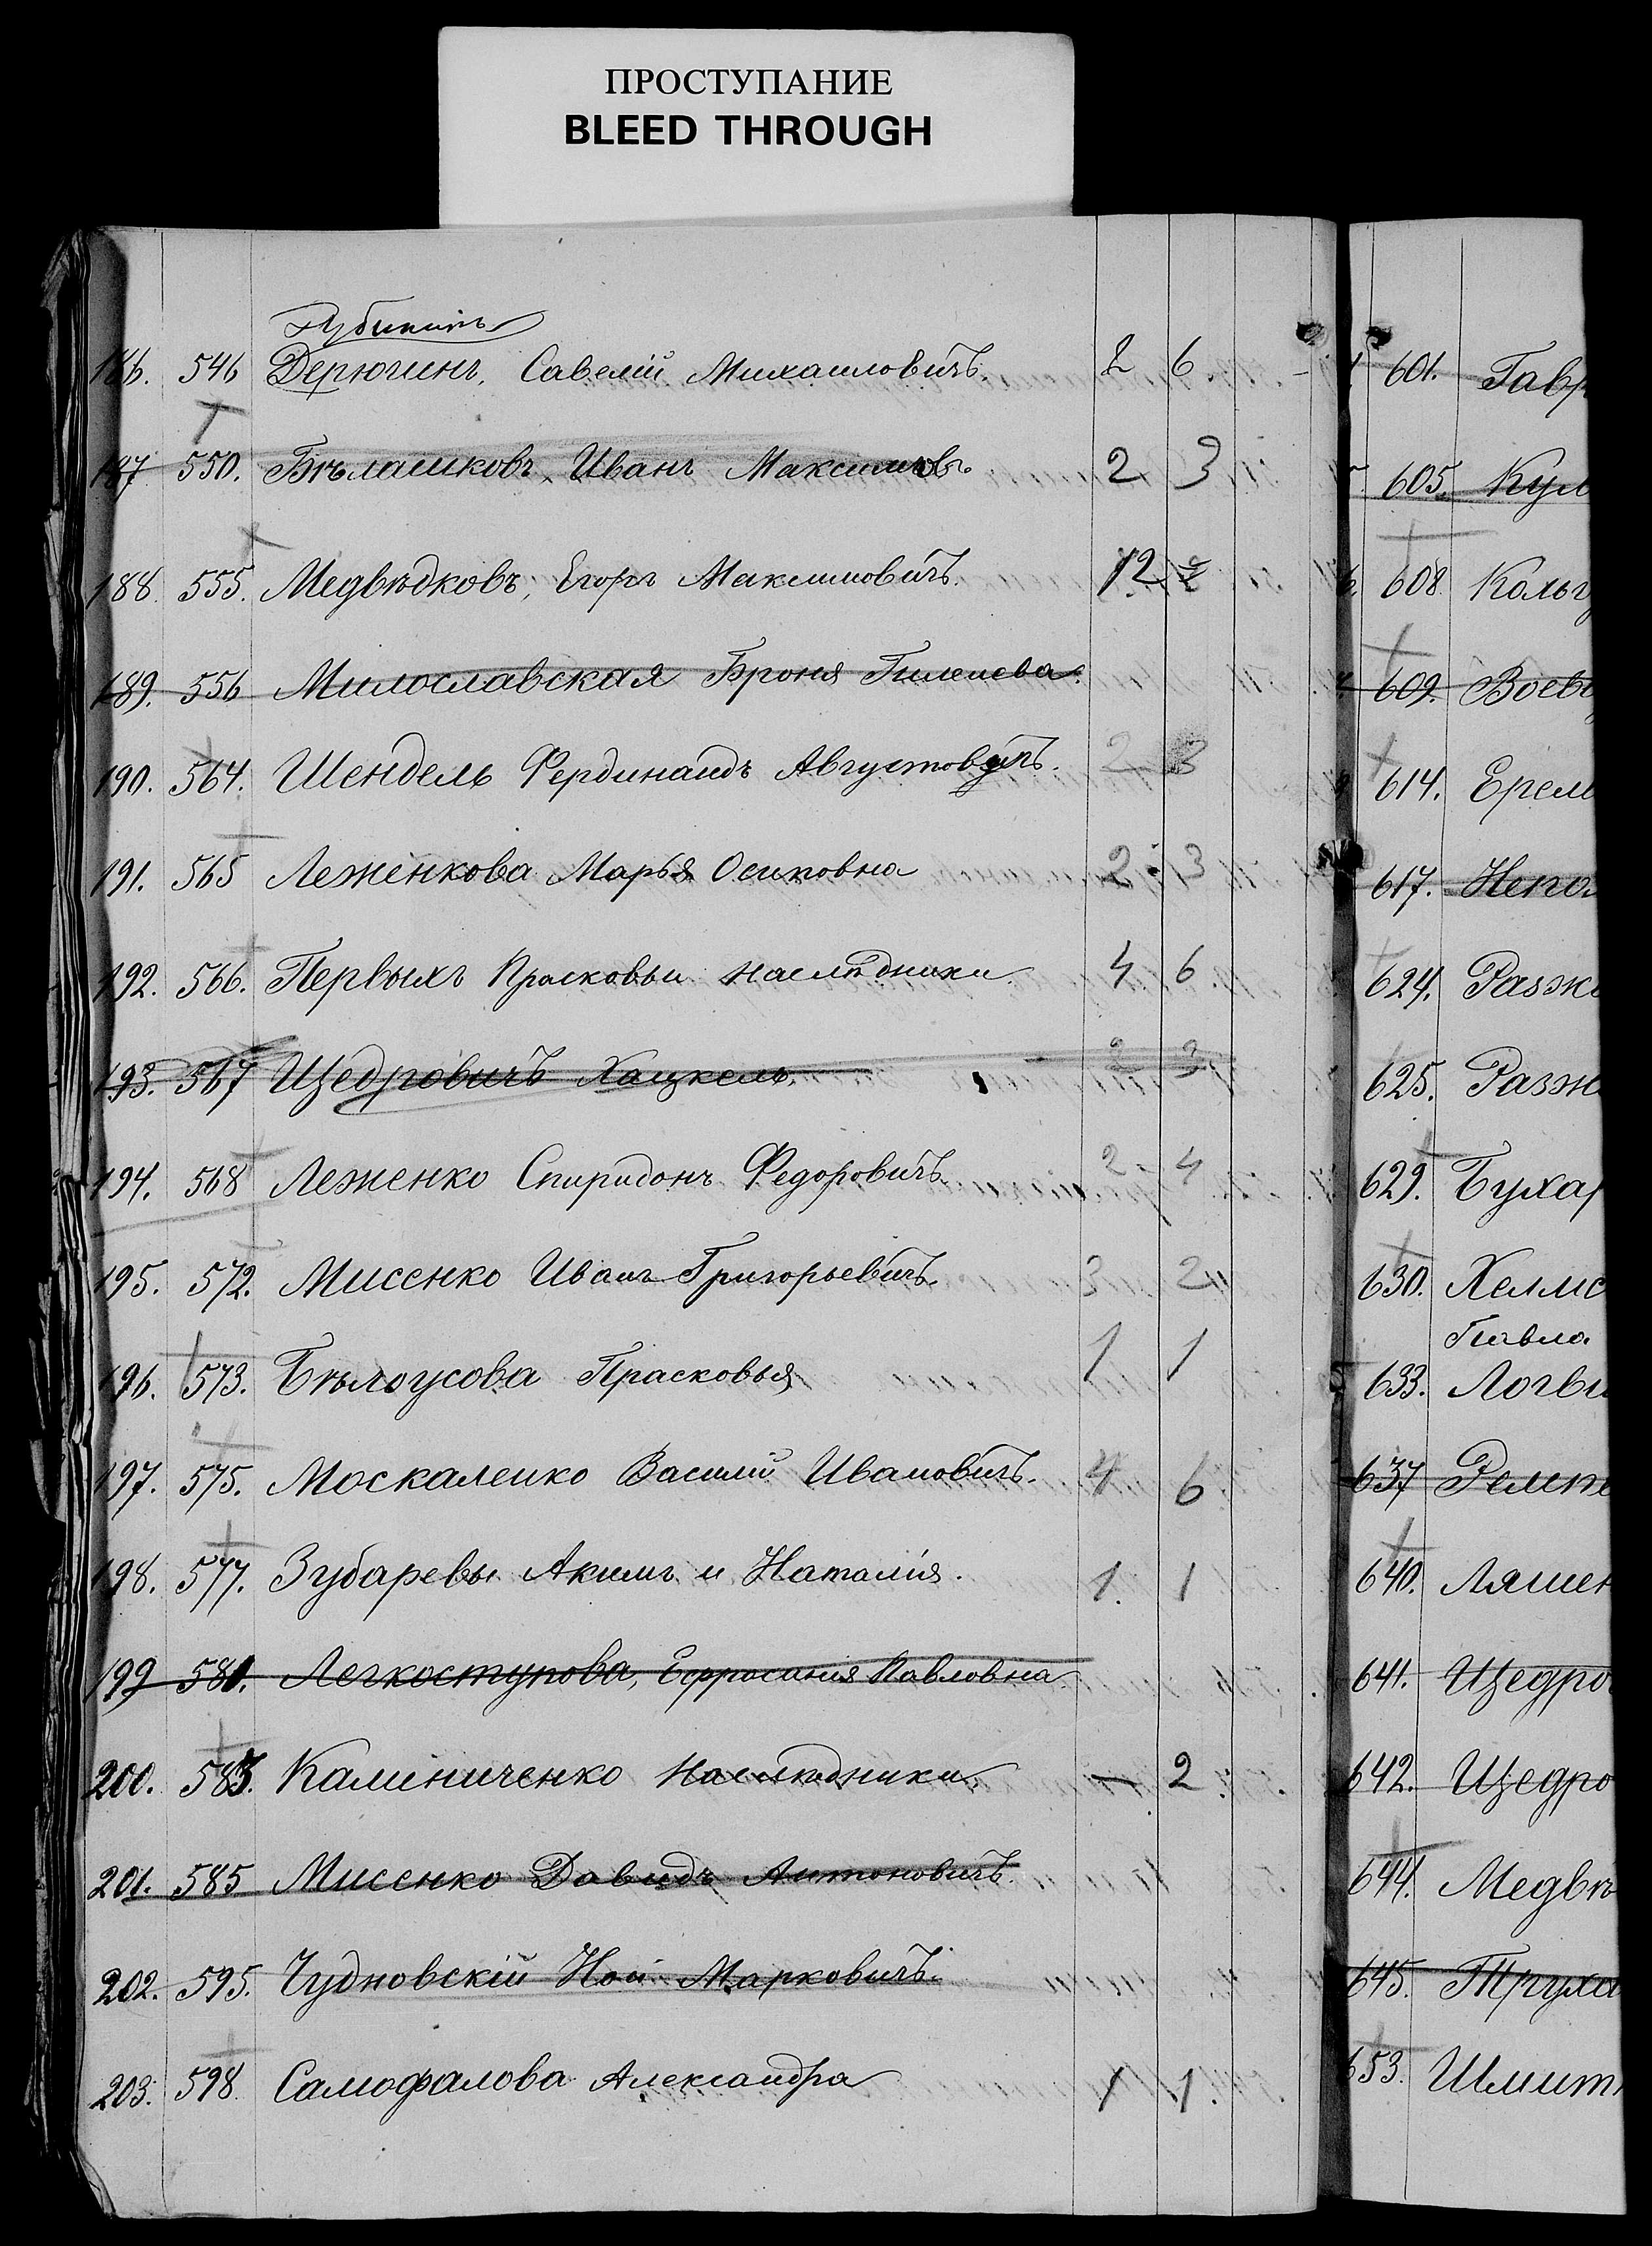 ПРОСТУПАНИЕ
BLEED THROUGH
186. 546 Дерюгинъ, Савелій Михаиловичъ. 2 6.
187 550. Бѣлашковъ, Иванъ Максимовъ. 2 3
188. 555. Медвѣдковъ, Егоръ Максимовичъ. 12
189. 556 Милославская Броня
190. 564. Шендель Фердинандъ Августовичъ. 2 3
191. 565 Леженкова Марья Осиповна 2 3
192. 566. Первыхъ Прасковьи наслѣдники 4 6
193. 567 Щедровичъ Хацкель. 2 3
194. 568 Леженко Спиридонъ Федоровичъ. 2 4
195. 572. Мисенко Иванъ Григорьевичъ. 3 2
196. 573. Бѣлоусова Прасковья 1 1
197. 575. Москаленко Василій Ивановичъ. 4 6
198. 577. Зубаревы Акимъ и Наталія. 1. 1
199 581. Легкоступова, Ефросинія Павловна
200. 583. Калиниченко Наслѣдники. — 2
201. 585 Мисенко Давидъ Антоновичъ.
202. 595. Чудновскій Ной Марковичъ.
203. 598 Самофалова Александра 1 1.
601. Гавр
605. Кул
608. Кольг
609. Воев
614. Ерем
617. Непо
624. Разж
625. Разж
629. Бухар
630. Хелмс
Павла
633. Логви
637 Ремпе
640. Ляшен
641. Щедро
642. Щедро
644. Медвѣ
645. Труха
653. Шмит